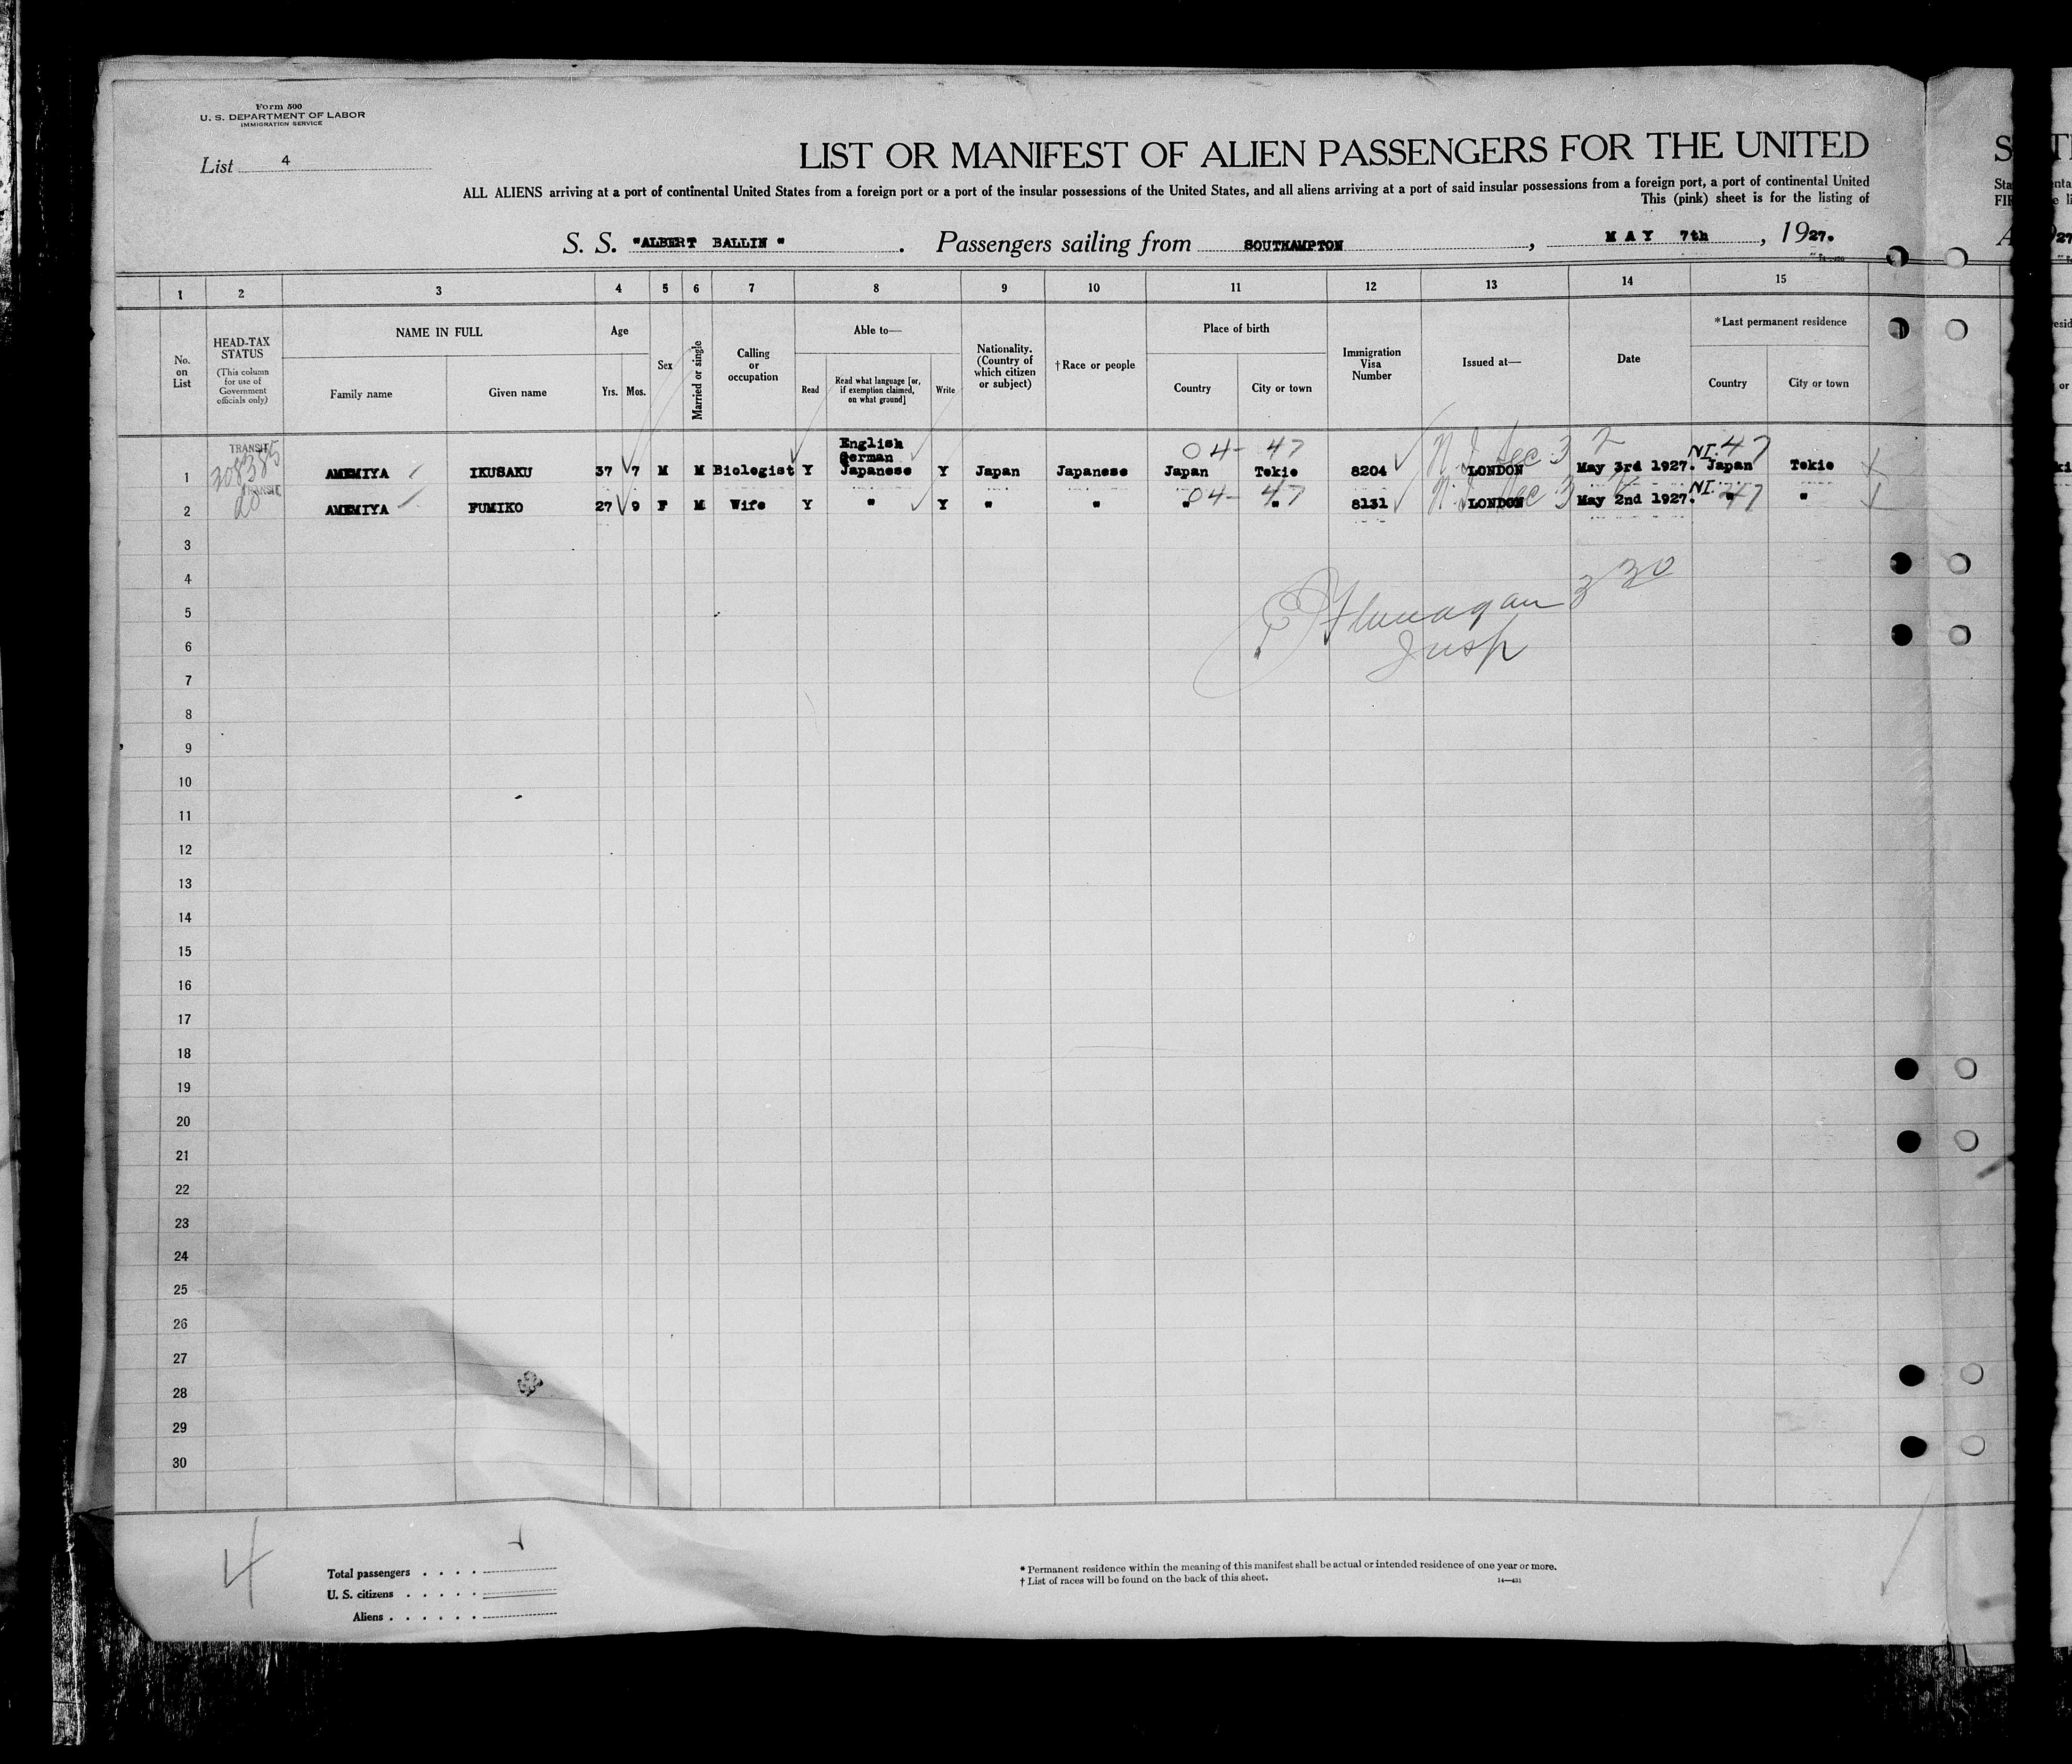 Form 500
U. S. DEPARTMENT OF LABOR
IMMIGRATION SERVICE
List 4
LIST OR MANIFEST OF ALIEN PASSENGERS FOR THE UNITED
ALL ALIENS arriving at a port of continental United States from a foreign port or a port of the insular possessions of the United States, and all aliens arriving at a port of said insular possessions from a foreign port, a port of continental United
This (pink) sheet is for the listing of
S. S. "ALBERT BALLIN" . Passengers sailing from SOUTHAMPTON , MAY 7th , 1927.
1 2 3 4 5 6 7 8 9 10 11 12 13 14 15
No. on List
HEAD-TAX STATUS
(This column for use of Government officials only)
NAME IN FULL
Family name Given name
Age
Yrs. Mos.
Sex
Married or single
Calling or occupation
Able to—
Read
Read what language [or, if exemption claimed, on what ground]
Write
Nationality. (Country of which citizen or subject)
†Race or people
Place of birth
Country City or town
Immigration Visa Number
Issued at—
Date
*Last permanent residence
Country City or town
TRANSIT English 04- 47 N.I. 47
308385 German
1 AMEMIYA IKUSAKU 37 7 M M Biologist Y Japanese Y Japan Japanese Japan Tokio 8204 LONDON May 3rd 1927. Japan Tokio
TRANSIT 04- 47 NI. 47
2 AMEMIYA FUMIKO 27 9 F M Wife Y " Y " " " " 8131 LONDON May 2nd 1927. " "
3
4
330
5
Flanagan
6
Insp
7
8
9
10
11
12
13
14
15
16
17
18
19
20
21
22
23
24
25
26
27
28
29
30
4
Total passengers . . . .
U. S. citizens . . . . .
Aliens . . . . . .
* Permanent residence within the meaning of this manifest shall be actual or intended residence of one year or more.
† List of races will be found on the back of this sheet.
14—431